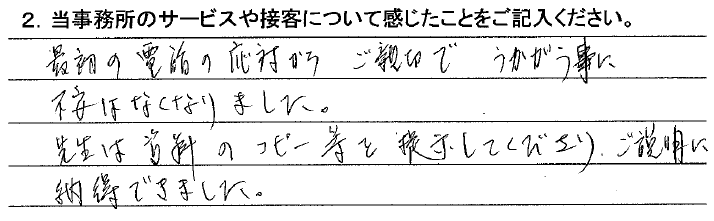 2．当事務所のサービスや接客について感じたことをご記入ください。
最初の電話の応対から ご親切で うかがう事に
不安はなくなりました。
先生は資料のコピー等を提示してくださり、ご説明に
納得できました。